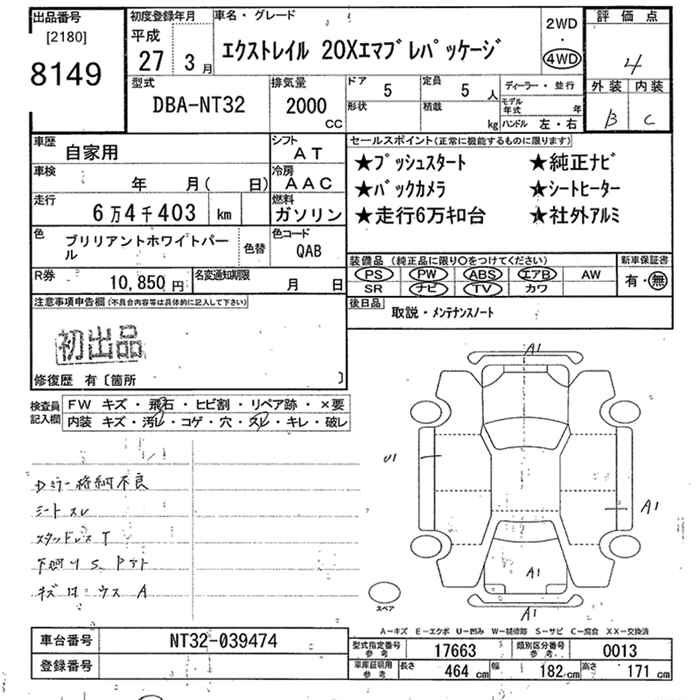 出品番号
[2180]
8149
初度登録年月
平成
27 3 月
車名・グレード
エクストレイル 20Xエマブレパッケージ
2WD
・
4WD
評価点
4
外装 内装
B C
型式
DBA-NT32
排気量
2000
CC
ドア
5
定員
5 人
形状
積載
kg
ディーラー・並行
モデル年式 年
ハンドル 左・右
車歴
自家用
シフト
AT
車検
年 月( 日)
冷房
AAC
走行
6万4千403 km
燃料
ガソリン
色
ブリリアントホワイトパール
色替
色コード
QAB
R券
10,850 円
名変通知期限
月 日
セールスポイント(正常に機能するものに限ります)
★プッシュスタート ★純正ナビ
★バックカメラ ★シートヒーター
★走行6万キロ台 ★社外アルミ
装備品(純正品に限り○をつけてください)
PS PW ABS エアB AW
SR ナビ TV カワ
新車保証書
有・無
後日品
取説・メンテナンスノート
注意事項申告欄(不具合内容等は具体的に記入して下さい)
初出品
修復歴 有〔箇所 〕
検査員記入欄
FW キズ・飛石・ヒビ割・リペア跡・×要
内装 キズ・汚レ・コゲ・穴・スレ・キレ・破レ
Dミラー格納不良
シートスレ
スタッドレスT
下廻りS
キズ
A
A1
U1
A1
A1
A1
スペア
A－キズ E－エクボ U－凹み W－補修跡 S－サビ C－腐食 XX－交換済
車台番号
NT32-039474
登録番号
型式指定番号
参考
17663
類別区分番号
参考
0013
車庫証明用
参考
長さ
464 cm
幅
182 cm
高さ
171 cm